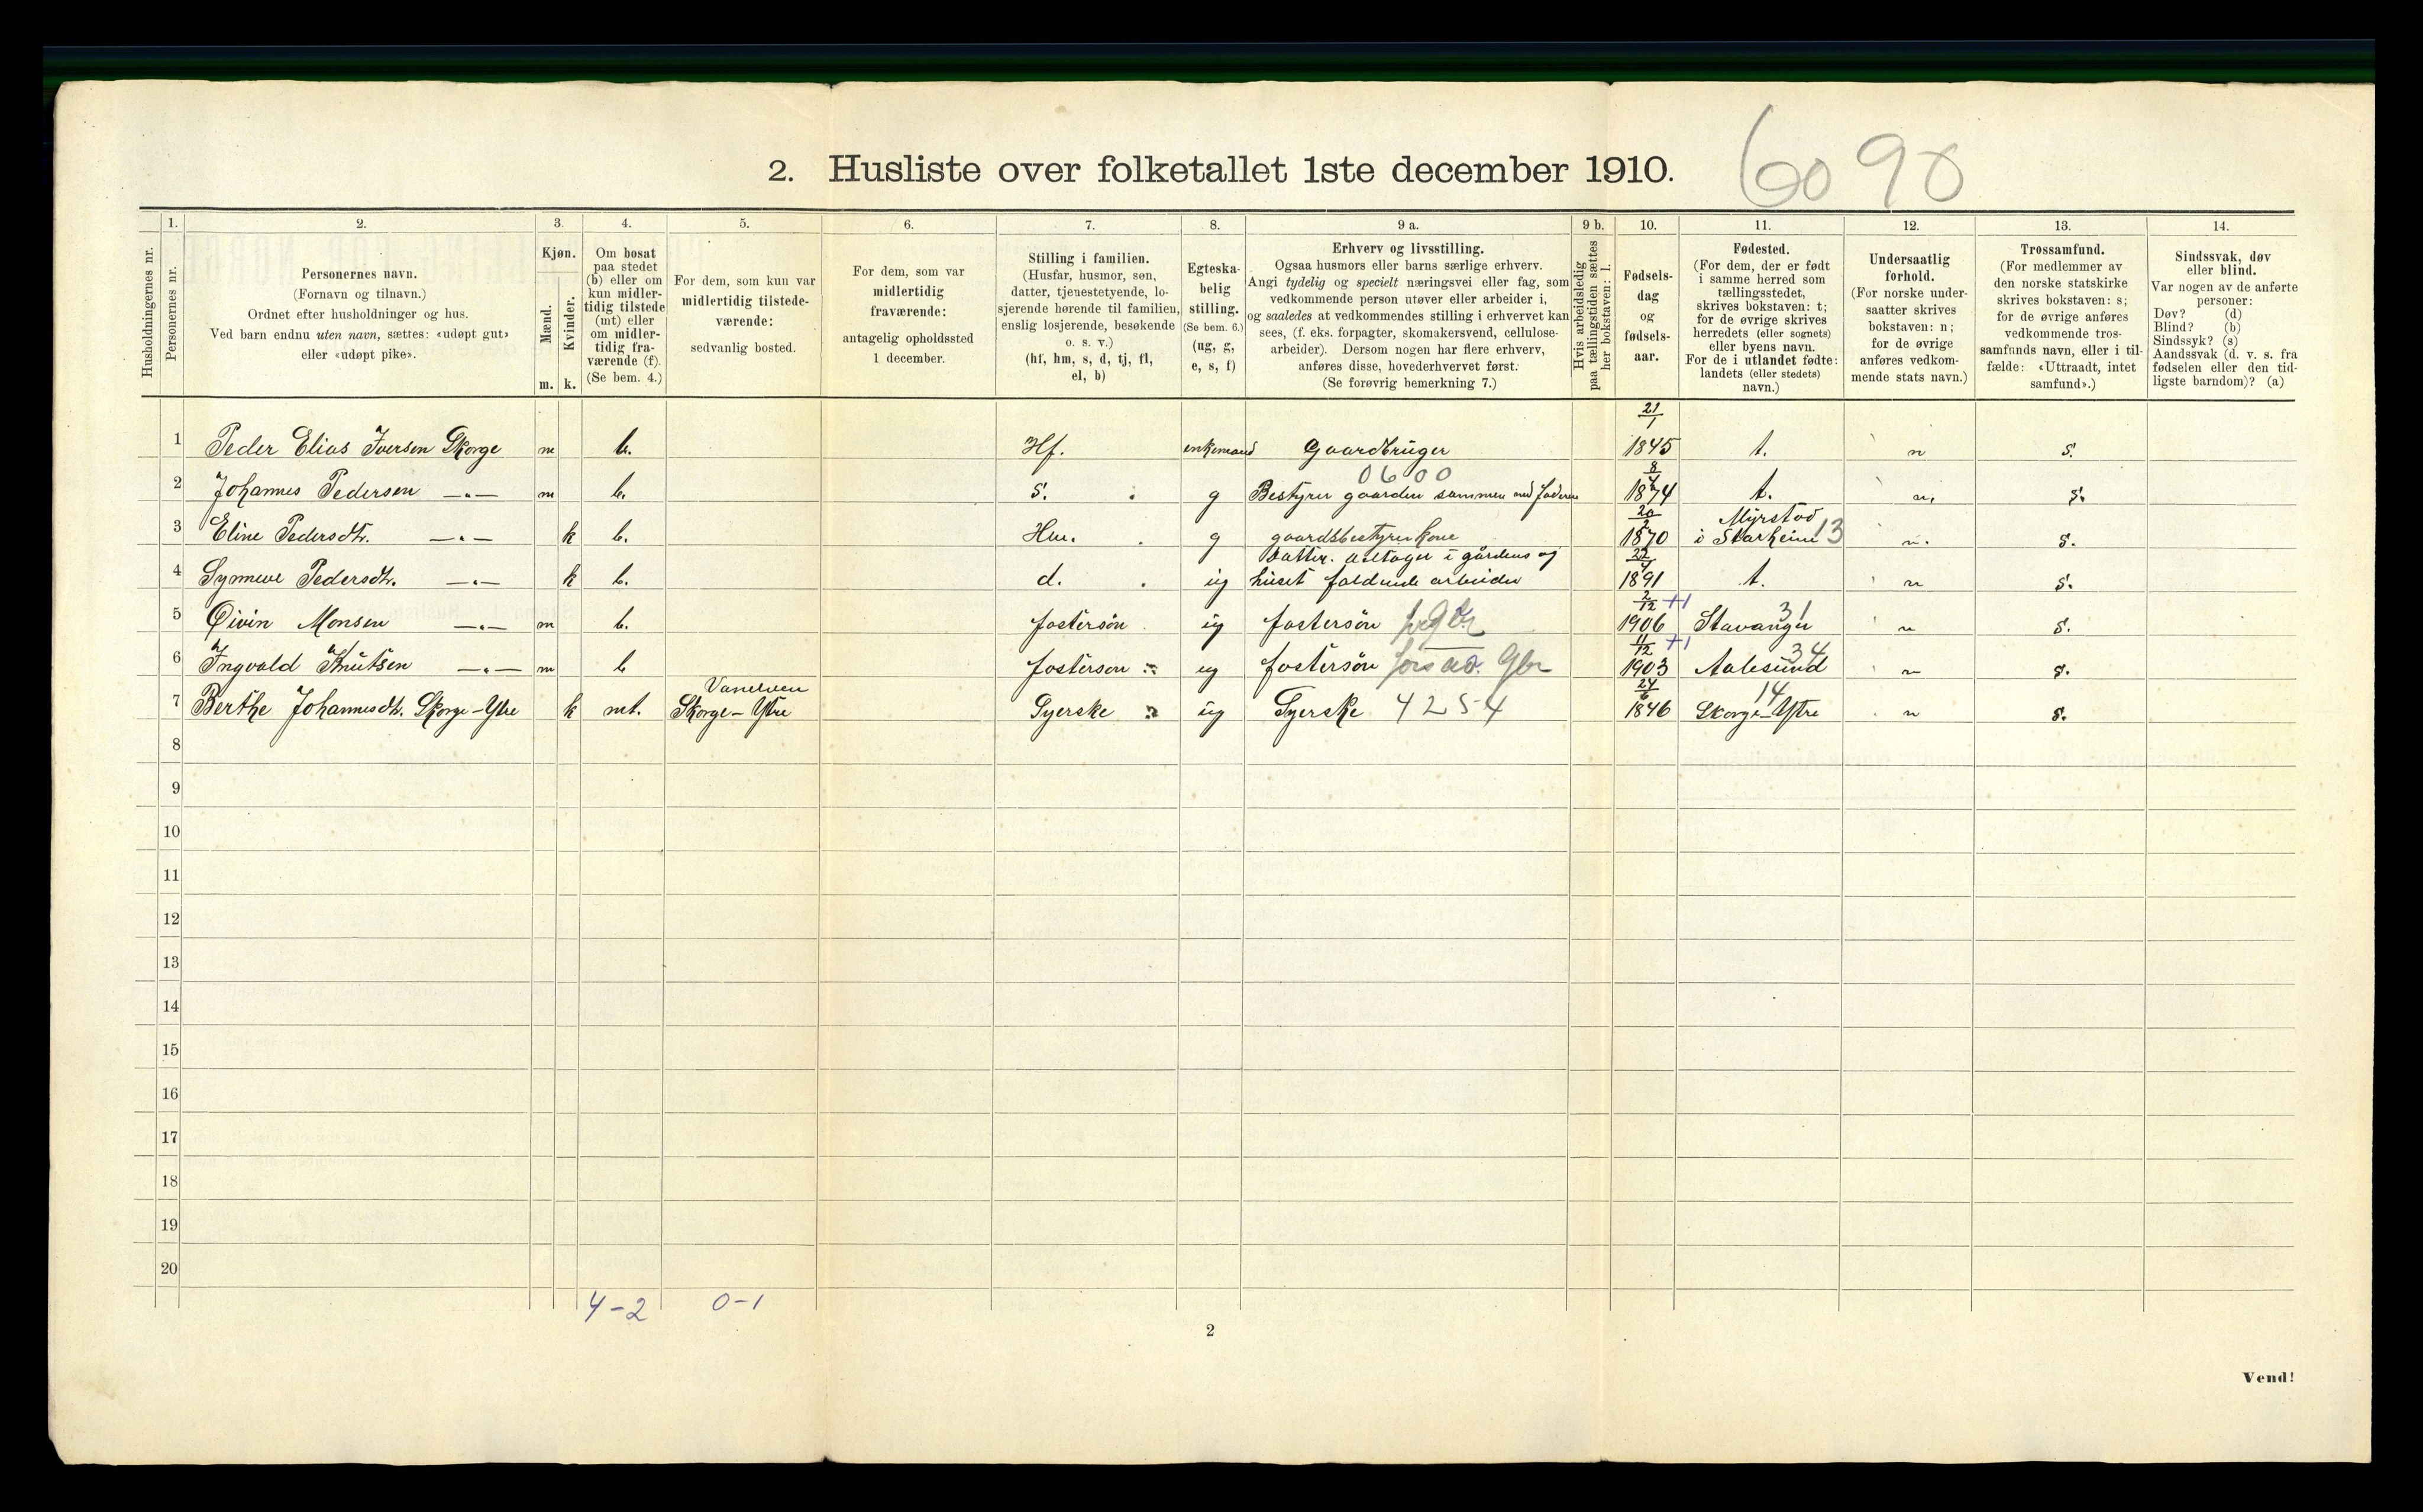 2. Husliste over folketallet 1ste december 1910.
6090
Husholdningernes nr.
1.
Personernes nr.
2.
Personernes navn.
(Fornavn og tilnavn.)
Ordnet efter husholdninger og hus.
Ved barn endnu uten navn, sættes: «udøpt gut»
eller «udøpt pike».
3.
Kjøn.
Mænd.
m.
Kvinder.
k.
4.
Om bosat
paa stedet
(b) eller om
kun midler-
tidig tilstede
(mt) eller
om midler-
tidig fra-
værende (f).
(Se bem. 4.)
5.
For dem, som kun var
midlertidig tilstede-
værende:
sedvanlig bosted.
6.
For dem, som var
midlertidig
fraværende:
antagelig opholdssted
1 december.
7.
Stilling i familien.
(Husfar, husmor, søn,
datter, tjenestetyende, lo-
sjerende hørende til familien,
enslig losjerende, besøkende
o. s. v.)
(hf, hm, s, d, tj, fl,
el, b)
8.
Egteska-
belig
stilling.
(Se bem. 6.)
(ug, g,
e, s, f)
9 a.
Erhverv og livsstilling.
Ogsaa husmors eller barns særlige erhverv.
Angi tydelig og specielt næringsvei eller fag, som
vedkommende person utøver eller arbeider i,
og saaledes at vedkommendes stilling i erhvervet kan
sees, (f. eks. forpagter, skomakersvend, cellulose-
arbeider). Dersom nogen har flere erhverv,
anføres disse, hovederhvervet først.
(Se forøvrig bemerkning 7.)
9 b.
Hvis arbeidsledig
paa tællingstiden sættes
her bokstaven: l.
10.
Fødsels-
dag
og
fødsels-
aar.
11.
Fødested.
(For dem, der er født
i samme herred som
tællingsstedet,
skrives bokstaven: t;
for de øvrige skrives
herredets (eller sognets)
eller byens navn.
For de i utlandet fødte:
landets (eller stedets)
navn.)
12.
Undersaatlig
forhold.
(For norske under-
saatter skrives
bokstaven: n;
for de øvrige
anføres vedkom-
mende stats navn.)
13.
Trossamfund.
(For medlemmer av
den norske statskirke
skrives bokstaven: s;
for de øvrige anføres
vedkommende tros-
samfunds navn, eller i til-
fælde: «Uttraadt, intet
samfund».)
14.
Sindssvak, døv
eller blind.
Var nogen av de anførte
personer:
Døv? (d)
Blind? (b)
Sindssyk? (s)
Aandssvak (d. v. s. fra
fødselen eller den tid-
ligste barndom)? (a)
1 Peder Elias Iversen Skorge m b. Hf. enkemand Gaardbruger 21/1 1845 t. n s.
0600
2 Johannes Pedersen —„— m b. s. g Bestyrer gaarden sammen med faderen 8/7 1874 t. n, s.
3 Eline Pedersdtr. —„— k b. Hm. g gaardsbestyrer kone 20/2 1870 Myrstad i Starheim 13 n. s.
4 Synneve Pedersdtr. —„— k b. d. ug datter. deltager i gårdens og
huset faldende arbeider 22/4 1891 t. n s.
5 Øivin Monsen —„— m b. fostersøn ug fostersøn 2/12 +1 1906 Stavanger 31 n s.
6 Ingvald Knutsen —„— m b fosterson ug fostersøn fors av. Gbr 11/12 +1 1903 Aalesund 34 n s.
7 Berthe Johannesdtr. Skorge-Ytre k mt. Vanelven Skorge-Ytre Syerske ug Syerske 4254 24/6 1846 Skorge-Ytre 14 n s.
8
9
10
11
12
13
14
15
16
17
18
19
20
4-2 0-1
2
Vend!